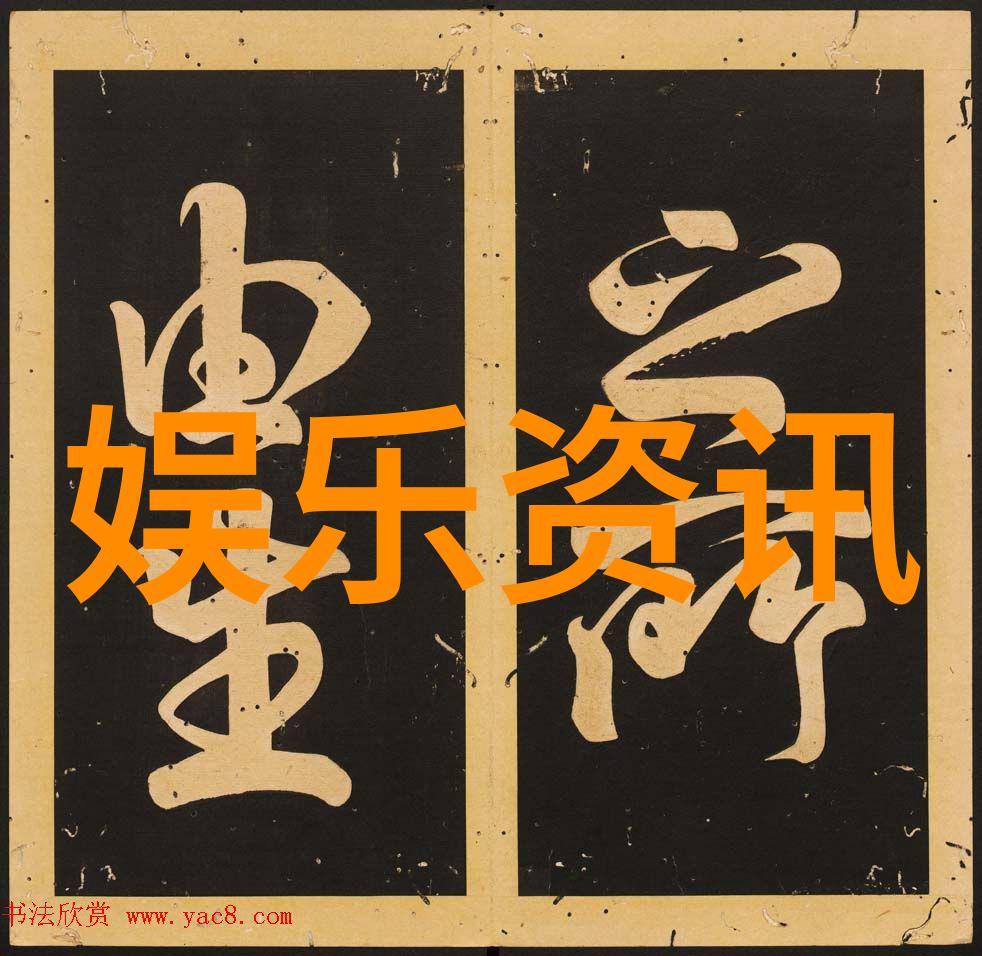 之所
由
娱乐资讯
书法欣赏 www.yac8.com